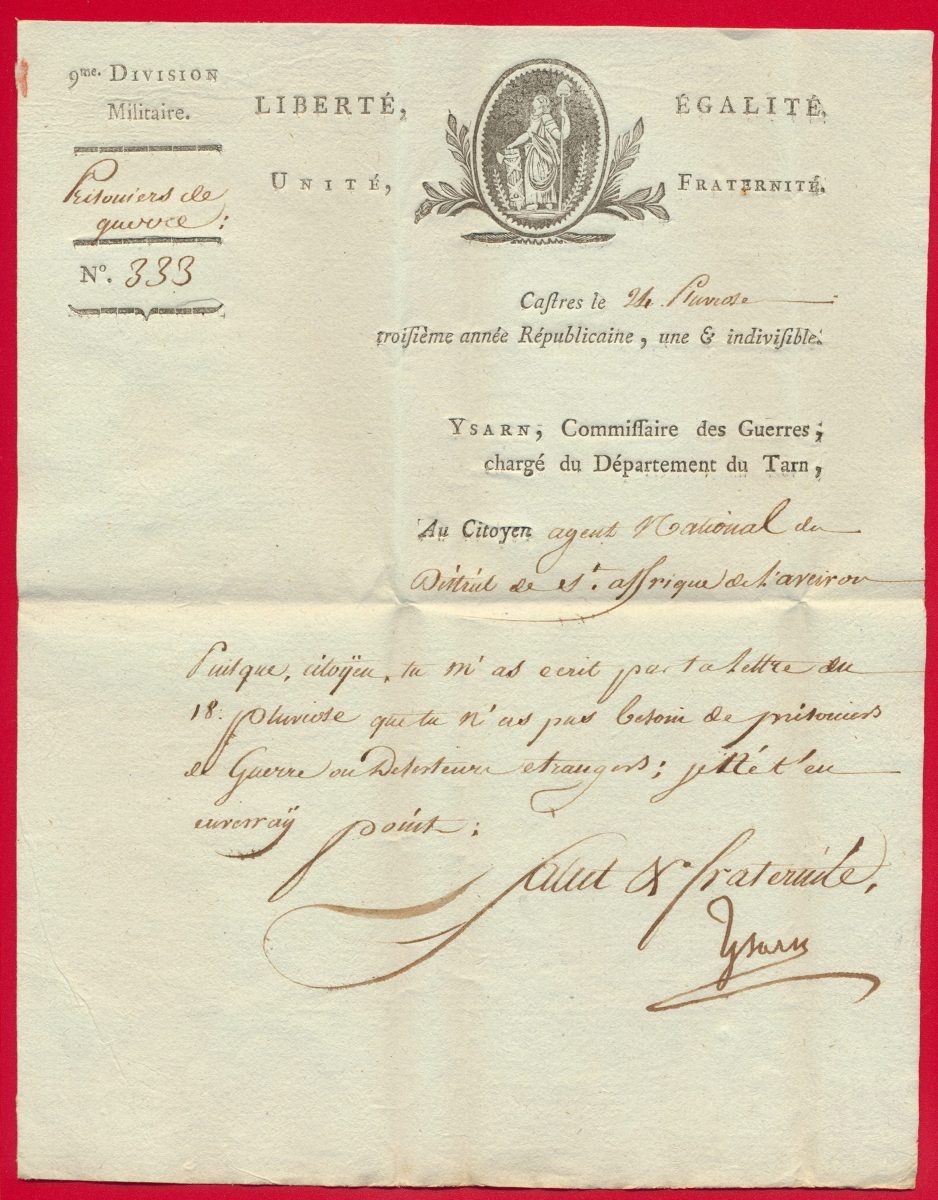 9me. DIVISION
Militaire.
LIBERTÉ, ÉGALITÉ,
UNITÉ, FRATERNITÉ.
Prisoniers de
guerre :
No. 333
Caſtres le 24 Pluviose
troiſième année Républicaine, une & indiviſible.
YSARN, Commiſſaire des Guerres ;
chargé du Département du Tarn,
Au Citoyen agent National du
District de St. affrique de L'aveiron
Puisque, citoÿen, tu m'as ecrit par ta lettre du
18. pluviose que tu n'as pas besoin de prisoniers
de Guerre ou Deserteurs etrangers ; je Ne t'en
enverraÿ point ;
Salut & fraternité,
Ysarn